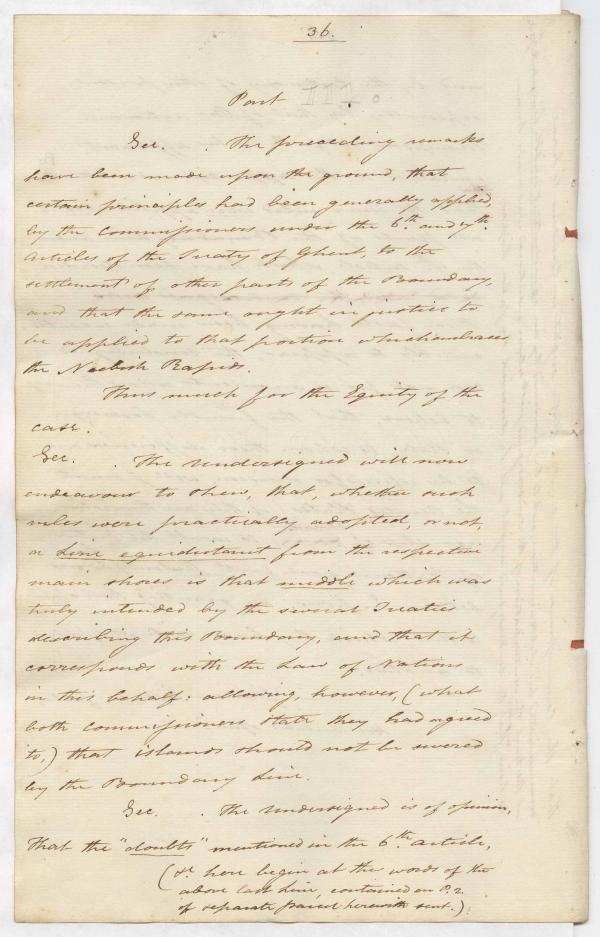 36.
Part III.
Sec. . The preceding remarks
have been made upon the ground, that
certain principles had been generally applied
by the Commissioners under the 6th. and 7th.
Articles of the Treaty of Ghent, to the
settlement of other parts of the Boundary,
and that the same ought in justice to
be applied to that portion which embraces
the Neebish Rapids.
Thus much for the Equity of the
case.
Sec. . The Undersigned will now
endeavour to shew, that, whether such
rules were practically adopted, or not,
a Line equidistant from the respective
main shores is that middle which was
truly intended by the several Treaties
describing this Boundary, and that it
corresponds with the Law of Nations
in this behalf: allowing, however, (what
both Commissioners state they had agreed
to,) that islands should not be severed
by the Boundary Line.
Sec. . The Undersigned is of opinion,
That the "doubts" mentioned in the 6th. article,
( here begin at the words of the
above last line, contained on P. 2
of separate herewith sent.)